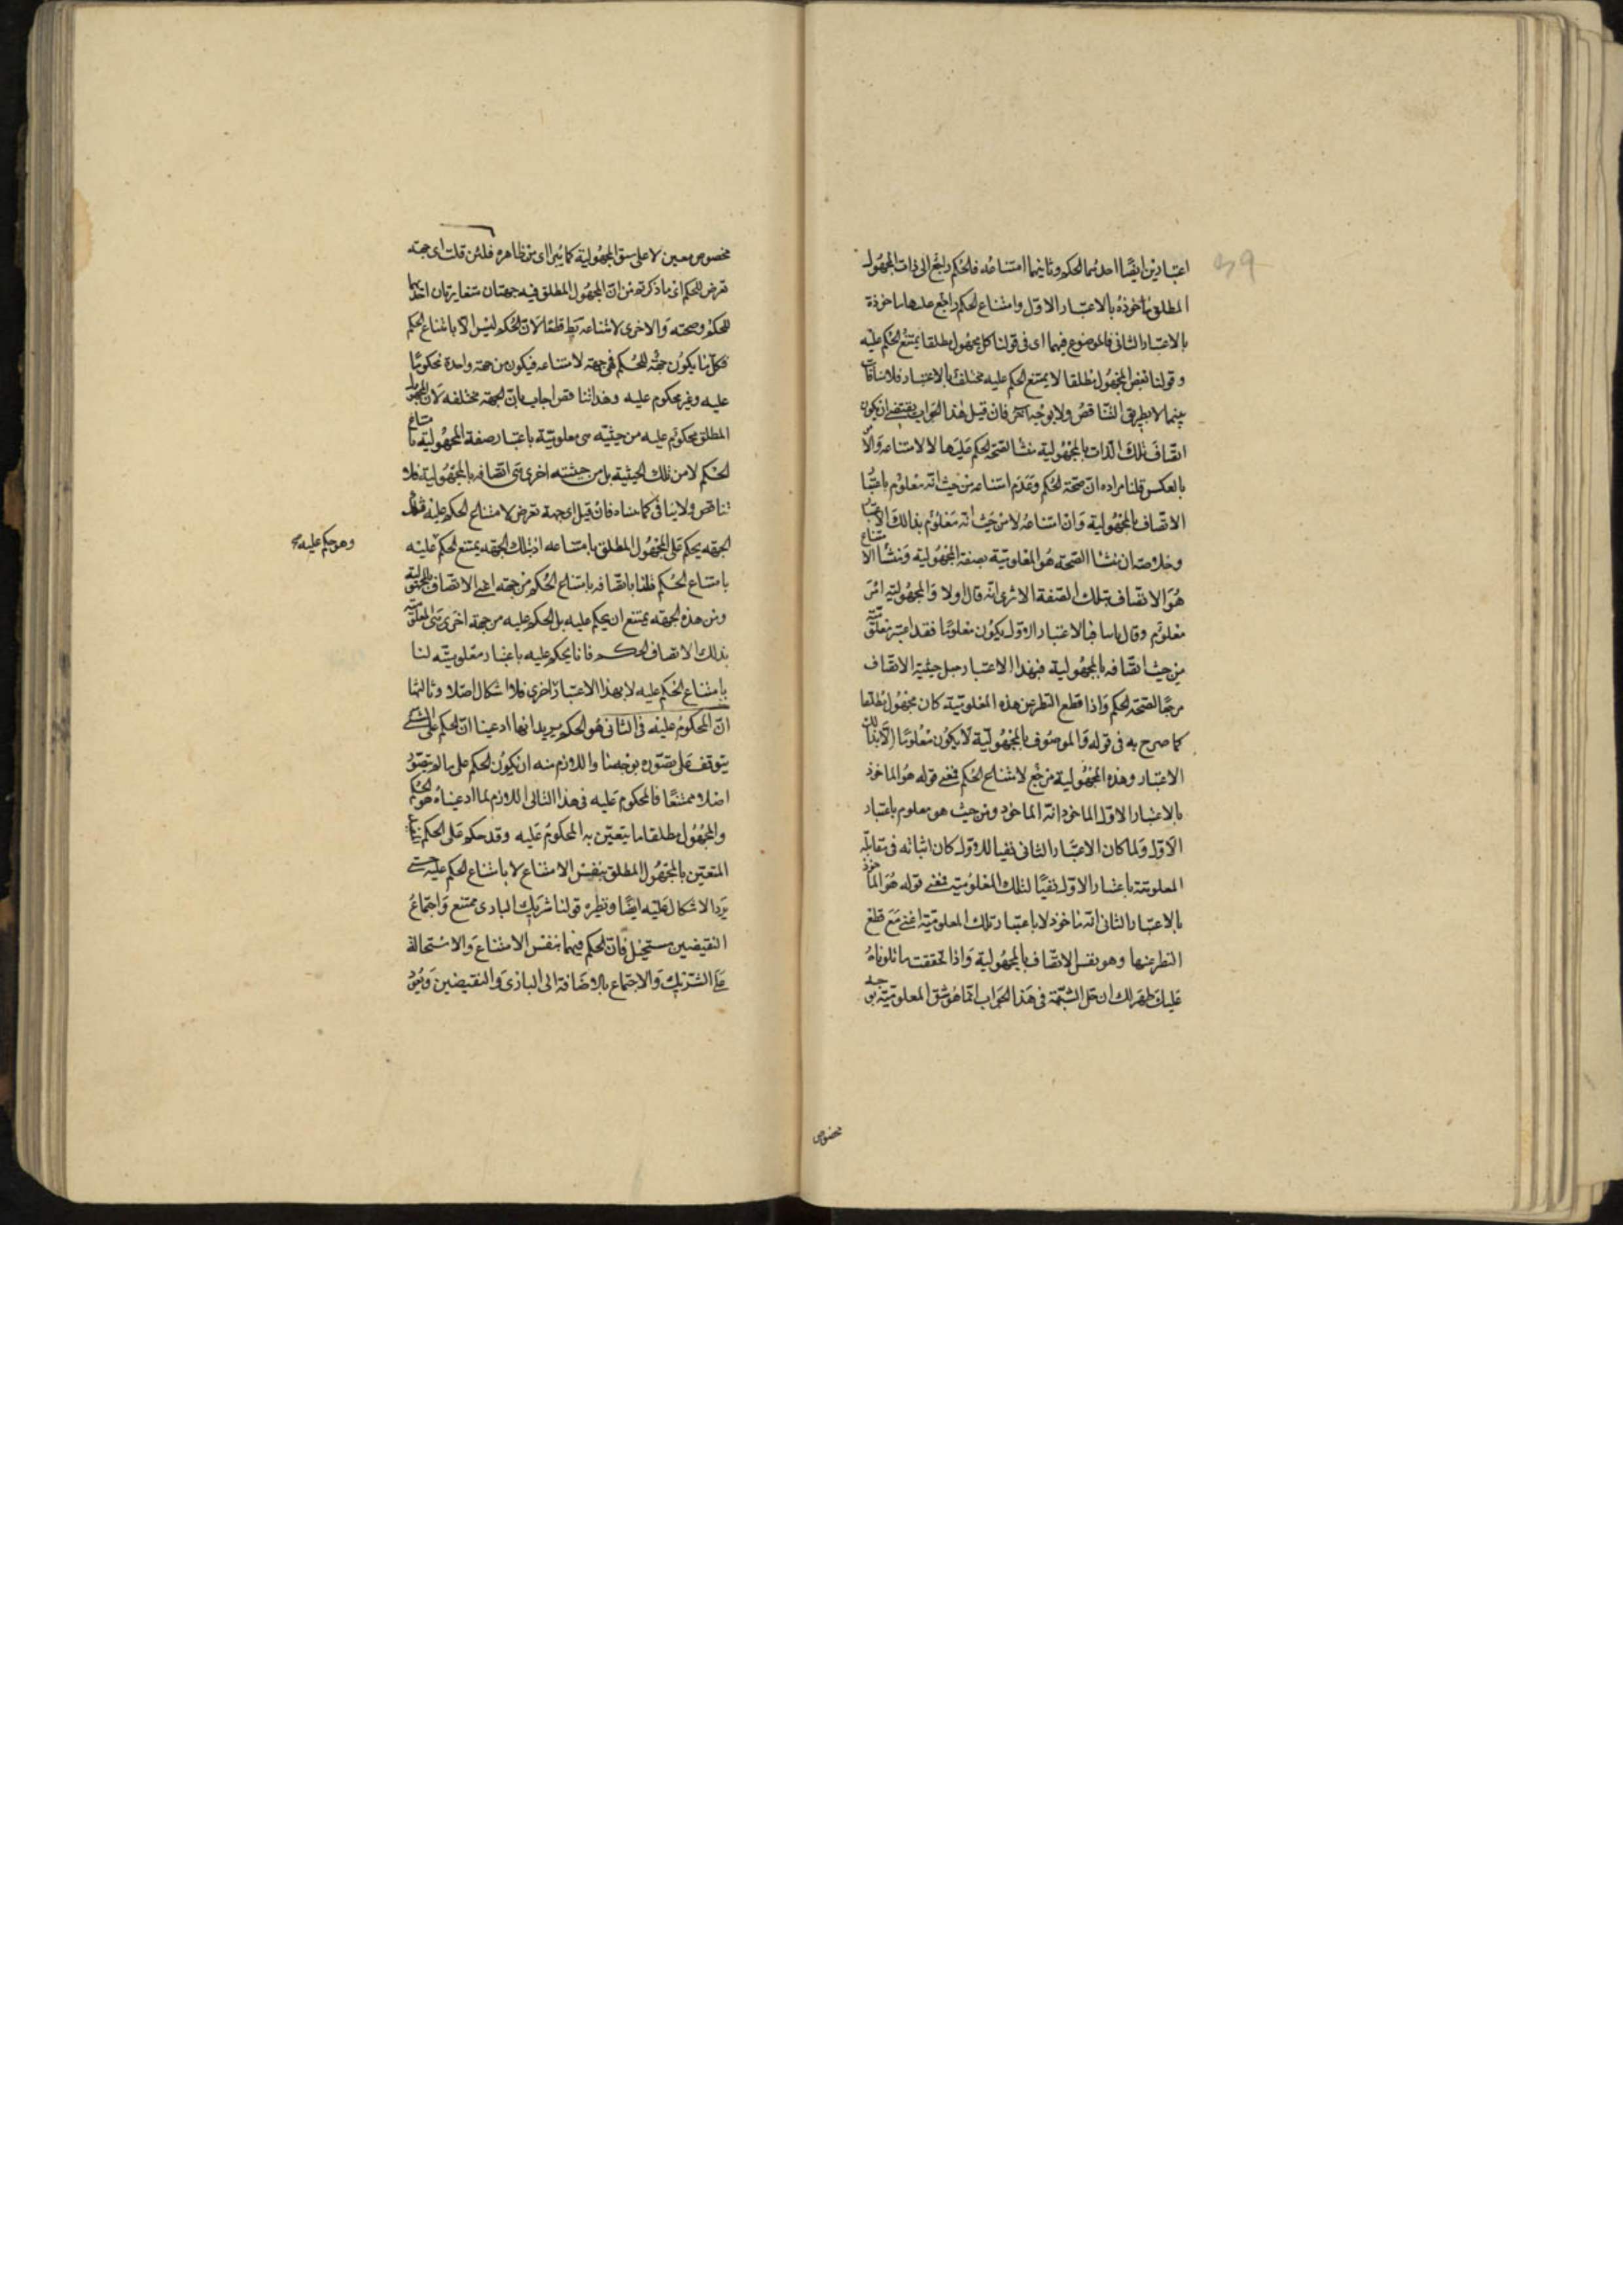 اعتبارين ايضًا احدهما الحكم وثانيهما امتناعه فالحكم راجع الى ذات المجهول
المطلق مأخوذة بالاعتبار الاول وامتناع الحكم راجع عليها مأخوذة
بالاعتبار الثانى فالموضوع فيهما اى فى قولنا كل مجهول مطلقا يمتنع الحكم عليه
وقولنا بعض المجهول مطلقا لا يمتنع الحكم عليه مختلف بالاعتبار فلا منافات
بينهما لا بطريق التناقض ولا بوجه آخر فان قيل هذا الجواب يقتضى ان يكون
اتصاف تلك الذات بالمجهولية منشا لصحة الحكم عليها لا لامتناعه والامر
بالعكس قلنا مراده ان صحة الحكم وعدم امتناعه من حيث انه معلوم باعتبار
الاتصاف بالمجهولية وان امتناعه لا من حيث انه معلوم بذالك الاعتبار
وخلاصته ان منشا الصحة هو المعلومية بصفة المجهولية ومنشأ الامتناع
هو الاتصاف بتلك الصفة الا ترى انه قال اولا والمجهولية امر
معلوم وقال سا فبالاعتبار الاول يكون معلومًا فقد اعتبر معلوميته
من حيث اتصافه بالمجهولية فبهذا الاعتبار جعل حيثية الاتصاف
مرجعًا لصحة الحكم واذا قطع النظر عن هذه المعلوميّة كان مجهول مطلقا
كما صرح به فى قوله والموصوف بالمجهوليّة لا يكون معلومًا الا بذلك
الاعتبار وهذه المجهولية مرجع لامتناع الحكم فمعنى قوله هو الماخوذ
بالاعتبار الاول الماخوذ انه الماخوذ ومن حيث هو معلوم باعتبار
الاول ولما كان الاعتبار الثانى نفيا للاول كان اثباته فى مقابلة
المعلومية باعتبار الاول نفيًا لتلك المعلومية فمعنى قوله هو الماخوذ
بالاعتبار الثانى انه ماخوذ لا باعتبار تلك المعلوميّة اعنى مع قطع
النظر عنها وهو نفس الاتصاف بالمجهولية واذا تحققت ما تلوناه
عليك ظهر لك ان حل الشبهة فى هذا الجواب انما هو شق المعلومية بوجه
مخصوص
مخصوص معين لا على شق المجهولية كما يترااى من ظاهره فلئن قلت اى جهة
تعرض للحكم اى ما ذكرته من ان المجهول المطلق فيه جهتان متغايرتان احديهما
للحكم وصحته والاخرى لامتناعه بط قطعًا لان الحكم ليس الا بامتناع الحكم
فكل ما يكون جهة للحكم فهى جهة لامتناعه فيكون من جهة واحدة محكومًا
عليه وغير محكوم عليه وهذا تناقض اجاب بان الجهة مختلفة لان المجهول
المطلق محكوم عليه من حيثية هى معلوميّة باعتبار صفة المجهولية بامتناع
الحكم لا من تلك الحيثية بل من حيثية اخرى هى اتصافه بالمجهولية فلا
تناقض ولا ينافى كما مناه فان قيل اى جهة تعرض لامتناع الحكم عليه فبتلك
الجهة يحكم على المجهول المطلق بامتناعه اذ بتلك الجهة يمتنع الحكم عليه
وهو حكم عليه صح
بامتناع الحكم قلنا باتصافه بامتناع الحكم من جهة اعنى الاتصاف بالمجهولية
ومن هذه الجهة يمتنع ان يحكم عليه بل الحكم عليه من جهة اخرى هى المعلومية
بذلك الاتصاف الحكم فانا يحكم عليه باعتبار معلوميته لنا
بامتناع الحكم عليه لا بهذا الاعتبار اخرى فلا اشكال اصلا وثالثها
ان المحكوم عليه فى الثانى هو الحكم يريد انها ادعينا ان الحكم على الشئ
يتوقف على تصوره بوجه ما واللازم منه ان يكون الحكم على ما لم يتصور
اصلا ممتنعًا فالمحكوم عليه فى هذا الثانى اللازم لما ادعيناه هو الحكم
والمجهول مطلقا ما يتعين به المحكوم عليه وقد حكم على الحكم
المتعين بالمجهول المطلق بنفس الامتناع لا بامتناع الحكم عليه حتى
يرد الاشكال عليه ايضًا ونظيره قولنا شريك البارى ممتنع واجتماع
النقيضين مستحيل فان الحكم فيهما بنفس الامتناع والاستحالة
على الشريك والاجتماع بالاضافة الى البارى والنقيضين